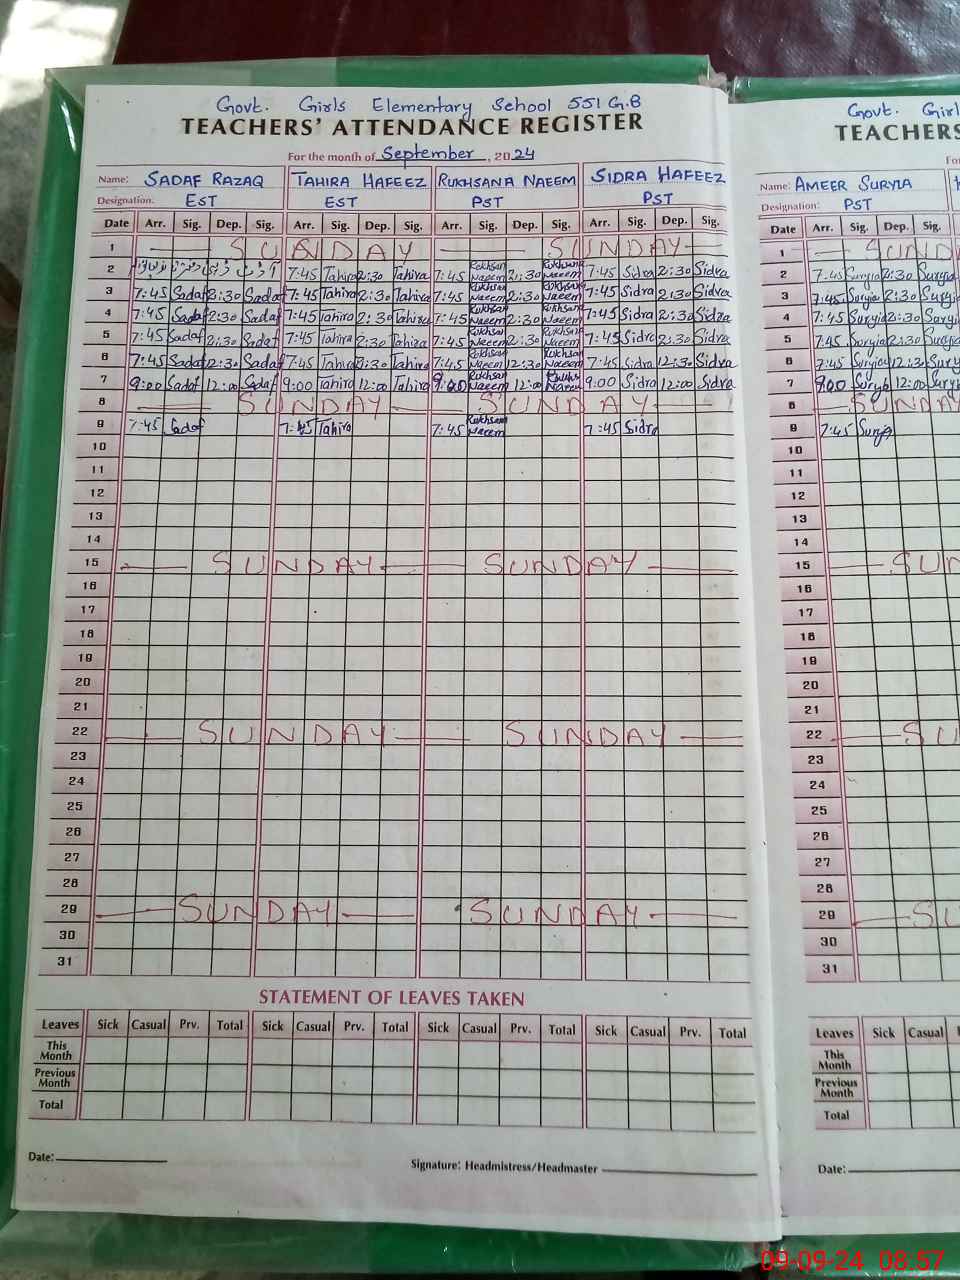 Govt. Girls Elementary School 551 G.B
TEACHERS' ATTENDANCE REGISTER
For the month of September, 2024
Name: SADAF RAZAQ TAHIRA HAFEEZ RUKHSANA NAEEM SIDRA HAFEEZ
Designation: EST EST PST PST
Date Arr. Sig. Dep. Sig. Arr. Sig. Dep. Sig. Arr. Sig. Dep. Sig. Arr. Sig. Dep. Sig.
1 SUNDAY SUNDAY
2 7:45 Tahira 2:30 Tahira 7:45 Rukhsana Naeem 2:30 Rukhsana Naeem 7:45 Sidra 2:30 Sidra
3 7:45 Sadaf 2:30 Sadaf 7:45 Tahira 2:30 Tahira 7:45 Rukhsana Naeem 2:30 Rukhsana Naeem 7:45 Sidra 2:30 Sidra
4 7:45 Sadaf 2:30 Sadaf 7:45 Tahira 2:30 Tahira 7:45 Rukhsana Naeem 2:30 Rukhsana Naeem 7:45 Sidra 2:30 Sidra
5 7:45 Sadaf 2:30 Sadaf 7:45 Tahira 2:30 Tahira 7:45 Rukhsana Naeem 2:30 Rukhsana Naeem 7:45 Sidra 2:30 Sidra
6 7:45 Sadaf 12:30 Sadaf 7:45 Tahira 12:30 Tahira 7:45 Rukhsana Naeem 12:30 Rukhsana Naeem 7:45 Sidra 12:30 Sidra
7 9:00 Sadaf 12:00 Sadaf 9:00 Tahira 12:00 Tahira 9:00 Rukhsana Naeem 12:00 9:00 Sidra 12:00 Sidra
8 SUNDAY SUNDAY
9 7:45 Sadaf 7:45 Tahira 7:45 Rukhsana Naeem 7:45 Sidra
10
11
12
13
14
15 SUNDAY SUNDAY
16
17
18
19
20
21
22 SUNDAY SUNDAY
23
24
25
26
27
28
29 SUNDAY SUNDAY
30
31
STATEMENT OF LEAVES TAKEN
Leaves Sick Casual Prv. Total Sick Casual Prv. Total Sick Casual Prv. Total Sick Casual Prv. Total
This Month
Previous Month
Total
Date:
Signature: Headmistress/Headmaster
Govt. Girl
TEACHERS
Name: AMEER SURYIA
Designation: PST
Date Arr. Sig. Dep. Sig.
1 SUND
2 7:45 Suryia 2:30 Suryia
3 7:45 Suryia 2:30 Suryia
4 7:45 Suryia 2:30 Suryia
5 7:45 Suryia 2:30 Suryia
6 7:45 Suryia 12:30 Suryia
7 9:00 Suryia 12:00 Suryia
8 SUNDAY
9 7:45 Suryia
10
11
12
13
14
15 SUN
16
17
18
19
20
21
22 SU
23
24
25
26
27
28
29 SU
30
31
Leaves Sick Casual
This Month
Previous Month
Total
Date:
09-09-24 08:57